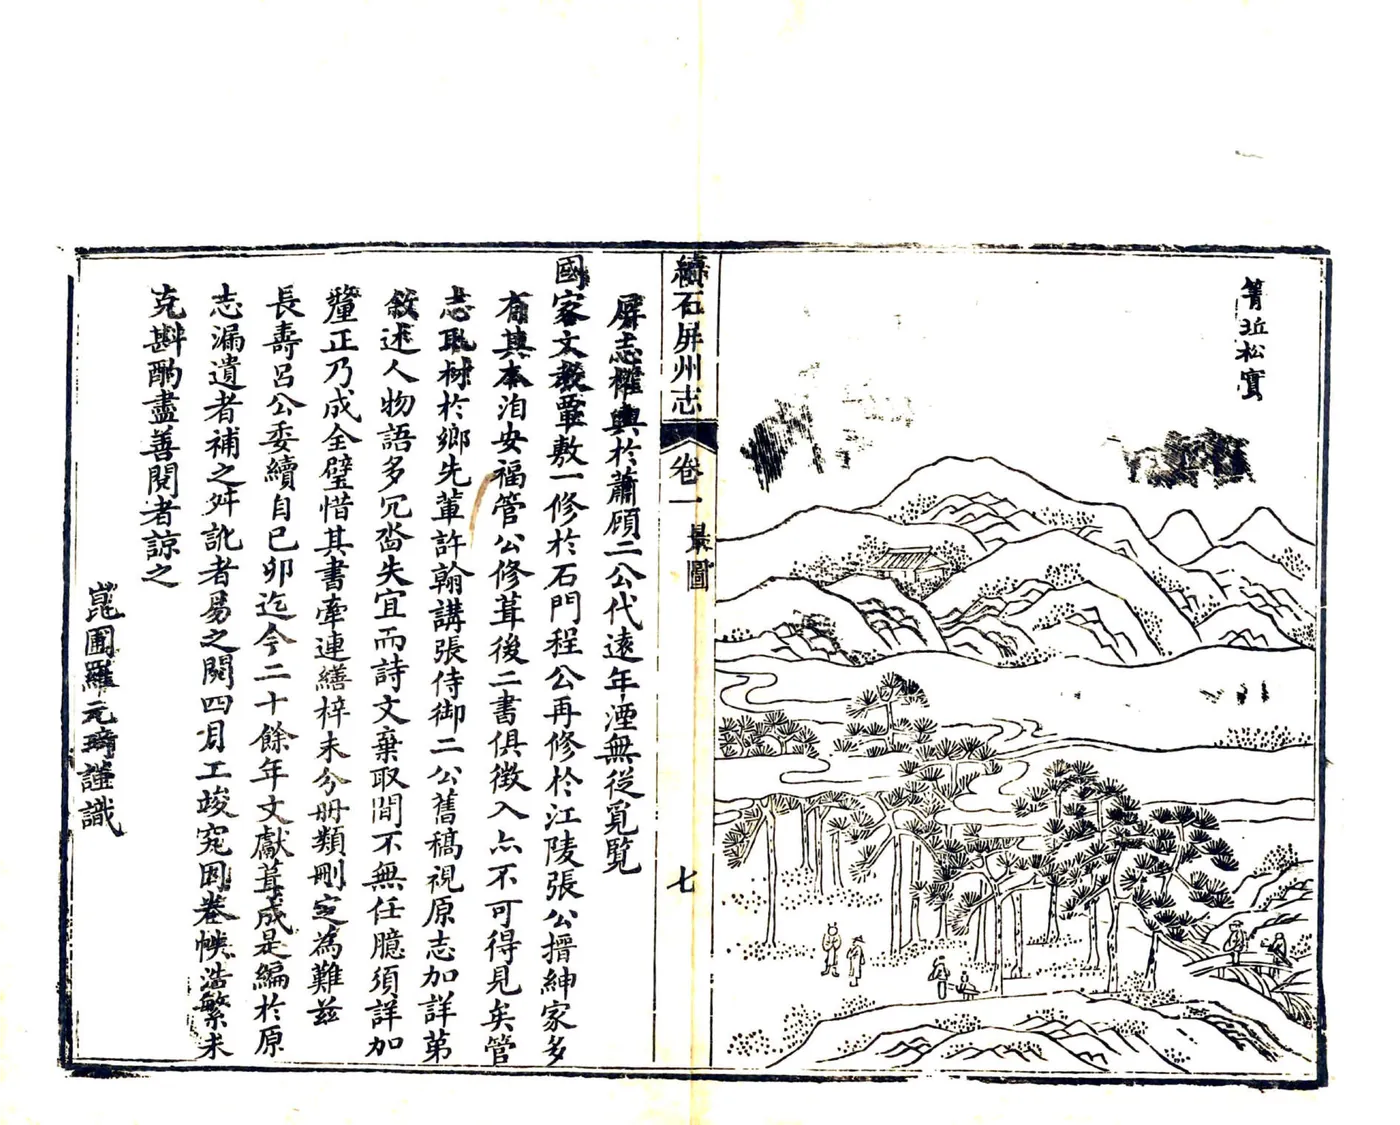 菁丘松實
續石屏州志
卷一 景圖
七
屏志權輿於蕭頎二公代遠年湮無從覓覽
國家文教覃敷一修於石門程公再修於江陵張公搢紳家多
有其本洎安福管公修葺後二書俱徵入亦不可得見矣管
志取材於鄉先輩許翰講張侍御二公舊稿視原志加詳苐
敘述人物語多冗沓失宜而詩文棄取間不無任臆須詳加
釐正乃成全璧惜其書牽連繕梓未分册類刪定為難茲
長壽呂公委續自己卯迄今二十餘年文獻葺成是編於原
志漏遺者補之舛訛者易之閱四月工竣究因卷帙浩繁未
克斟酌盡善閱者諒之
崑圃羅元琦謹識